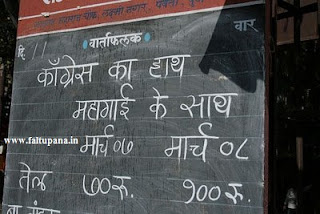 दि.
वार्ताफलक
वार
काँग्रेस का हाथ
महागाई के साथ
www.faltupana.in
मार्च ०७ मार्च ०८
तेल ७०रु. १००रु.